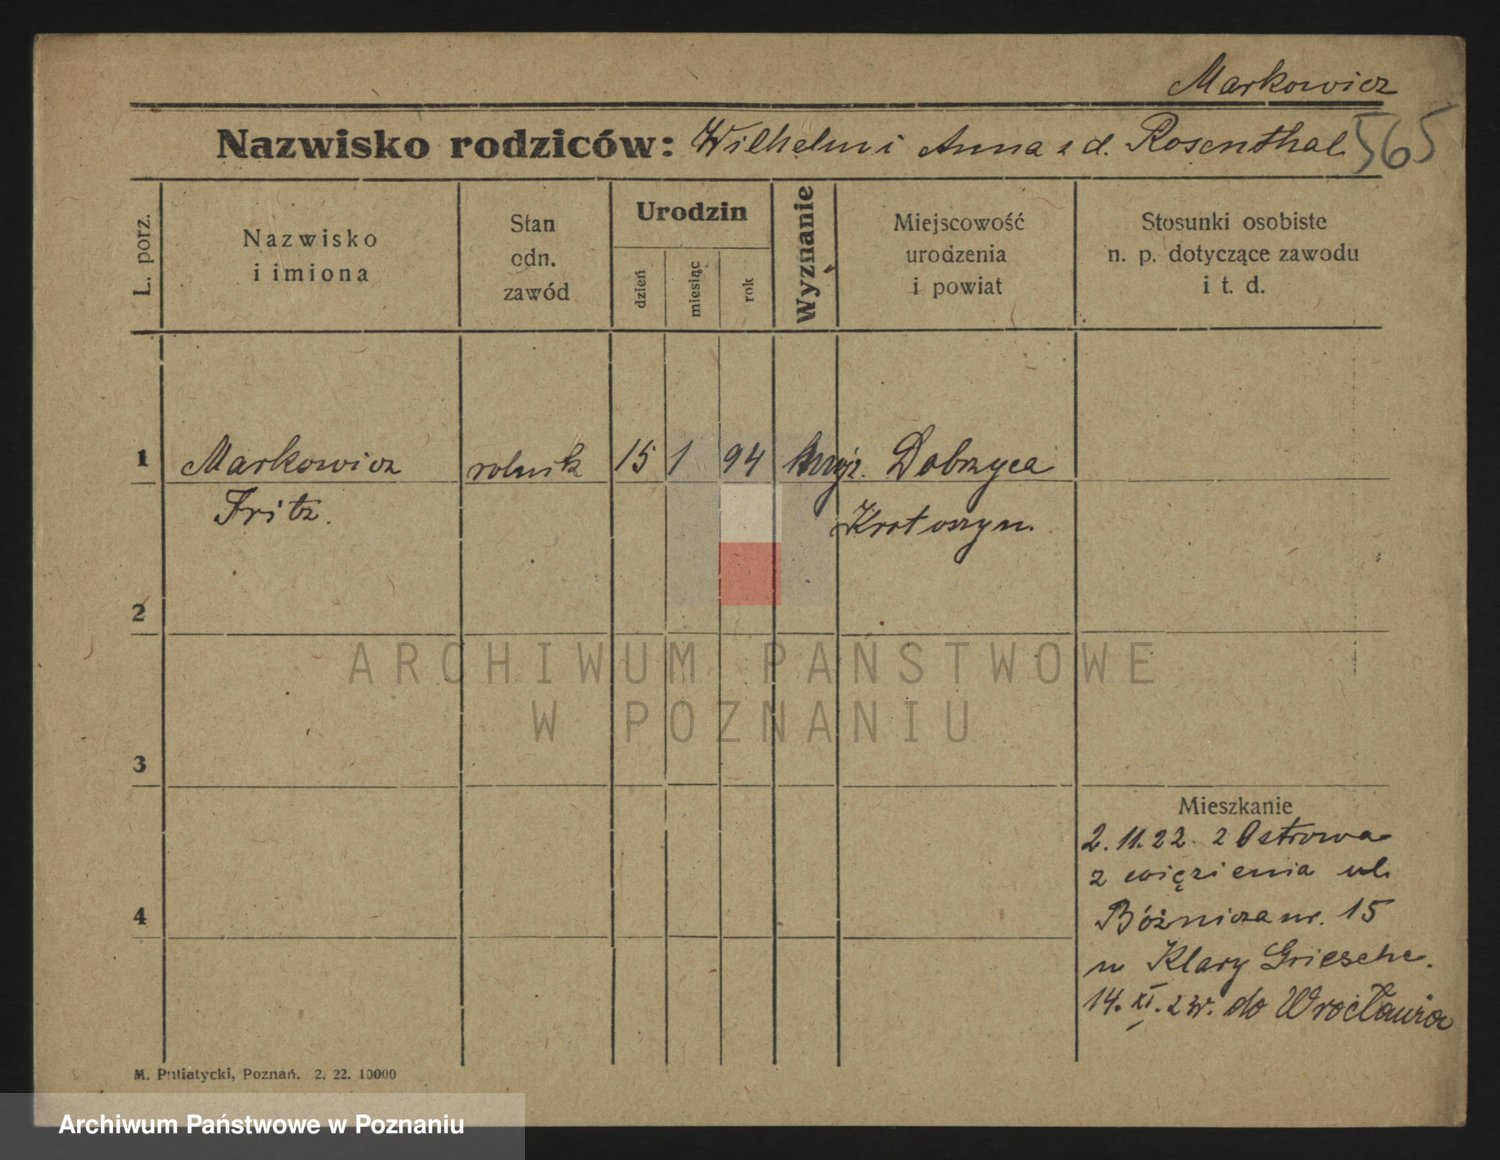 Markowicz
Nazwisko rodziców: Wilhelm i Anna z d. Rosenthal 565
L. porz.
Nazwisko
i imiona
Stan
odn.
zawód
Urodzin
dzień
miesiąc
rok
Wyznanie
Miejscowość
urodzenia
i powiat
Stosunki osobiste
n. p. dotyczące zawodu
i t. d.
1 Markowicz rolnik 15 1 94 Dobrzyca
Fritz. Krotoszyn.
2
ARCHIWUM PAŃSTWOWE
W POZNANIU
3
Mieszkanie
2. 11. 22. z Ostrowa
z więzienia ul.
4 Bóżnicza nr. 15
u Klary Griesche.
14. XI. 2 do Wrocławia
M. Putiatycki, Poznań. 2. 22. 10000
Archiwum Państwowe w Poznaniu